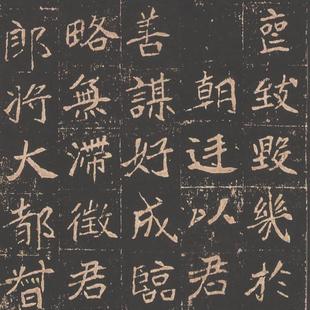 致毀幾於
朝廷以君
善謀好成臨
略無滯徵君
郎將大都督